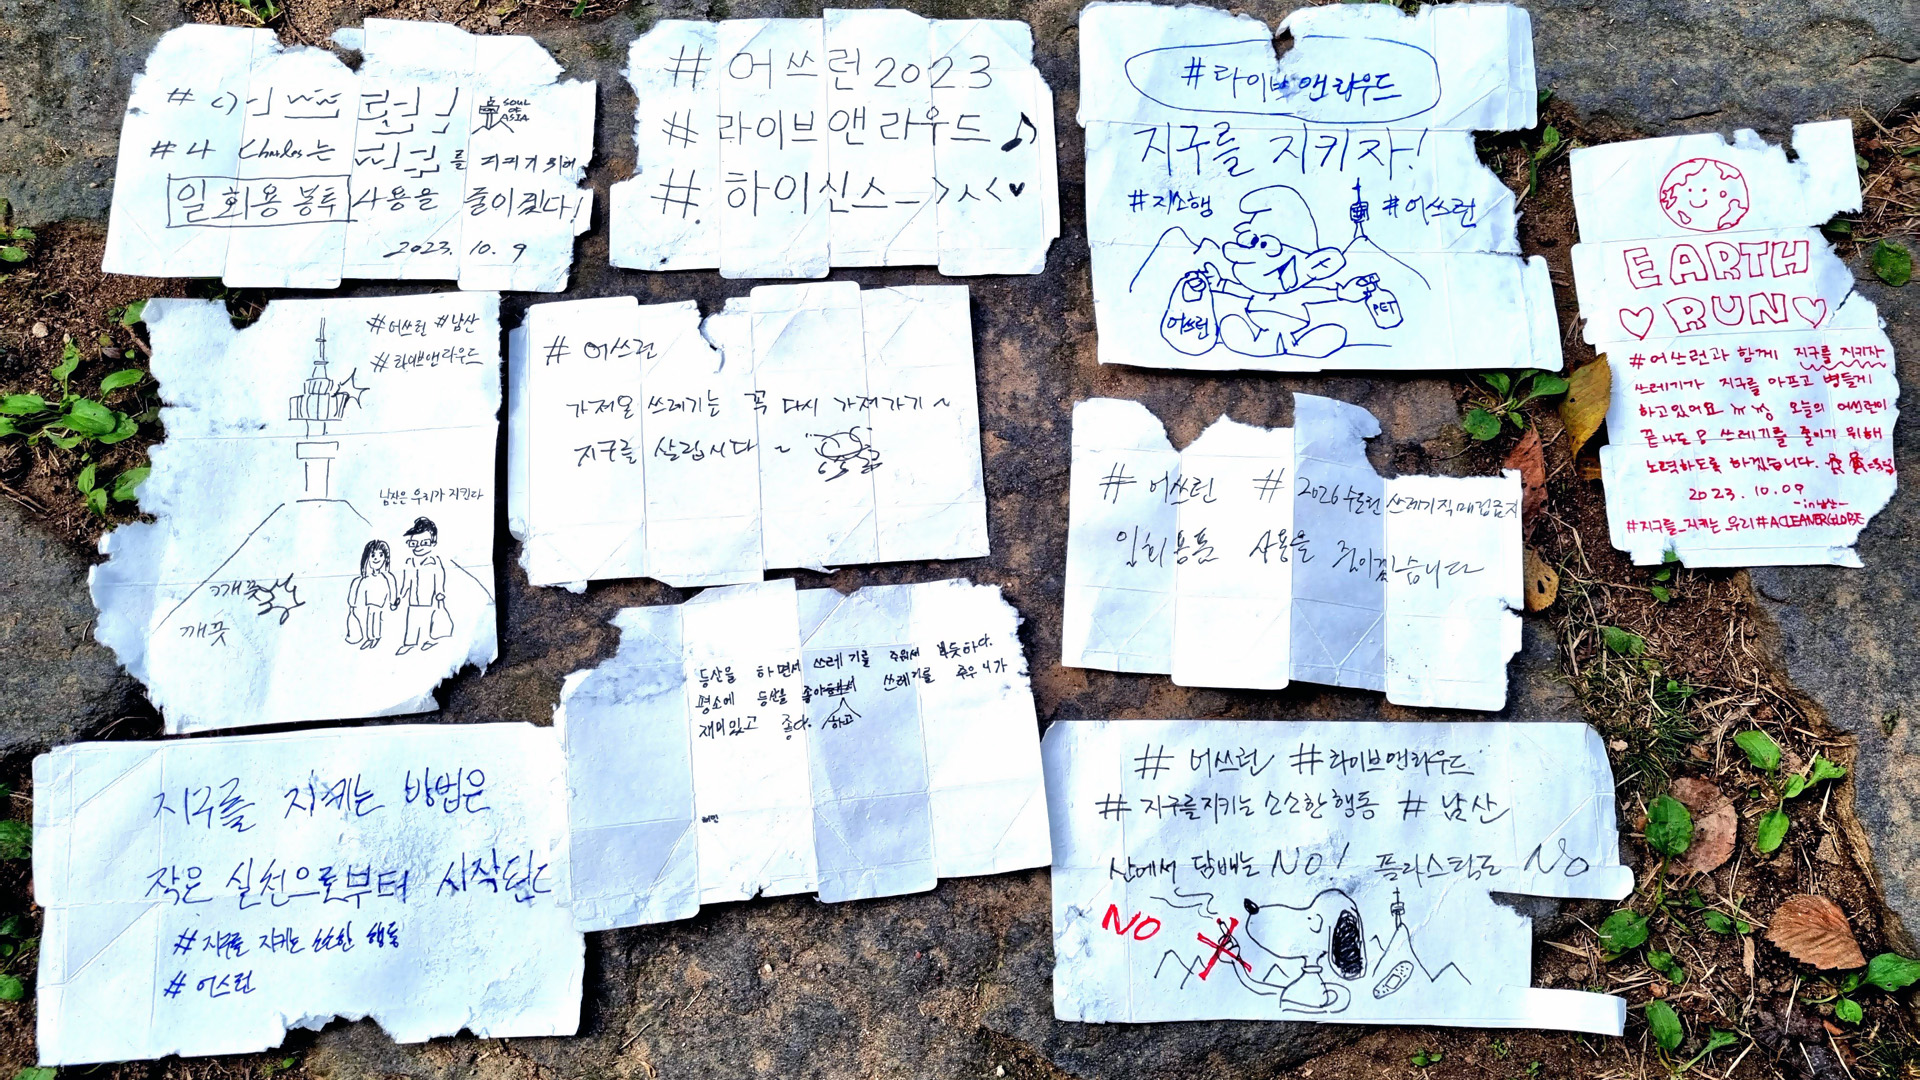 SOUL
OF
ASIA
#나 Charles는 를 지키기 위해
일회용 봉투 사용을 줄이겠다!
2023. 10. 9
#어쓰런2023
#라이브앤라우드♪
#하이신스_>ㅅ<♥
#라이브앤라우드
지구를 지키자!
#지소행
#어쓰런
어쓰런
PET
EARTH
♡RUN♡
#어쓰런과 함께 지구를 지키자
쓰레기가 지구를 아프고 병들게
하고있어요 오늘의 어쓰런이
끝나도 쓰레기를 줄이기 위해
노력하도록 하겠습니다.
2023.10.09
-in남산-
#지구를_지키는_우리#ACLEANERGLOBE
#어쓰런 #남산
#라이브앤라우드
남산은 우리가 지킨다
깨끗
깨끗
#어쓰런
가져온 쓰레기는 꼭 다시 가져가기~
지구를 살립시다~
#어쓰런 #2026수도권 쓰레기직매립금지
일회용품 사용을 줄이겠습니다
등산을 하면서 쓰레기를 주워서 뿌듯하다.
평소에 등산을 좋아 쓰레기를 주우니가
재미있고 좋다. 하고
지구를 지키는 방법은
작은 실천으로부터 시작된다
#지구를 지키는 소소한 행동
#어스런
#어쓰런 #라이브앤라우드
#지구를지키는소소한행동 #남산
산에서 담배는 NO! 플라스틱도 NO
NO